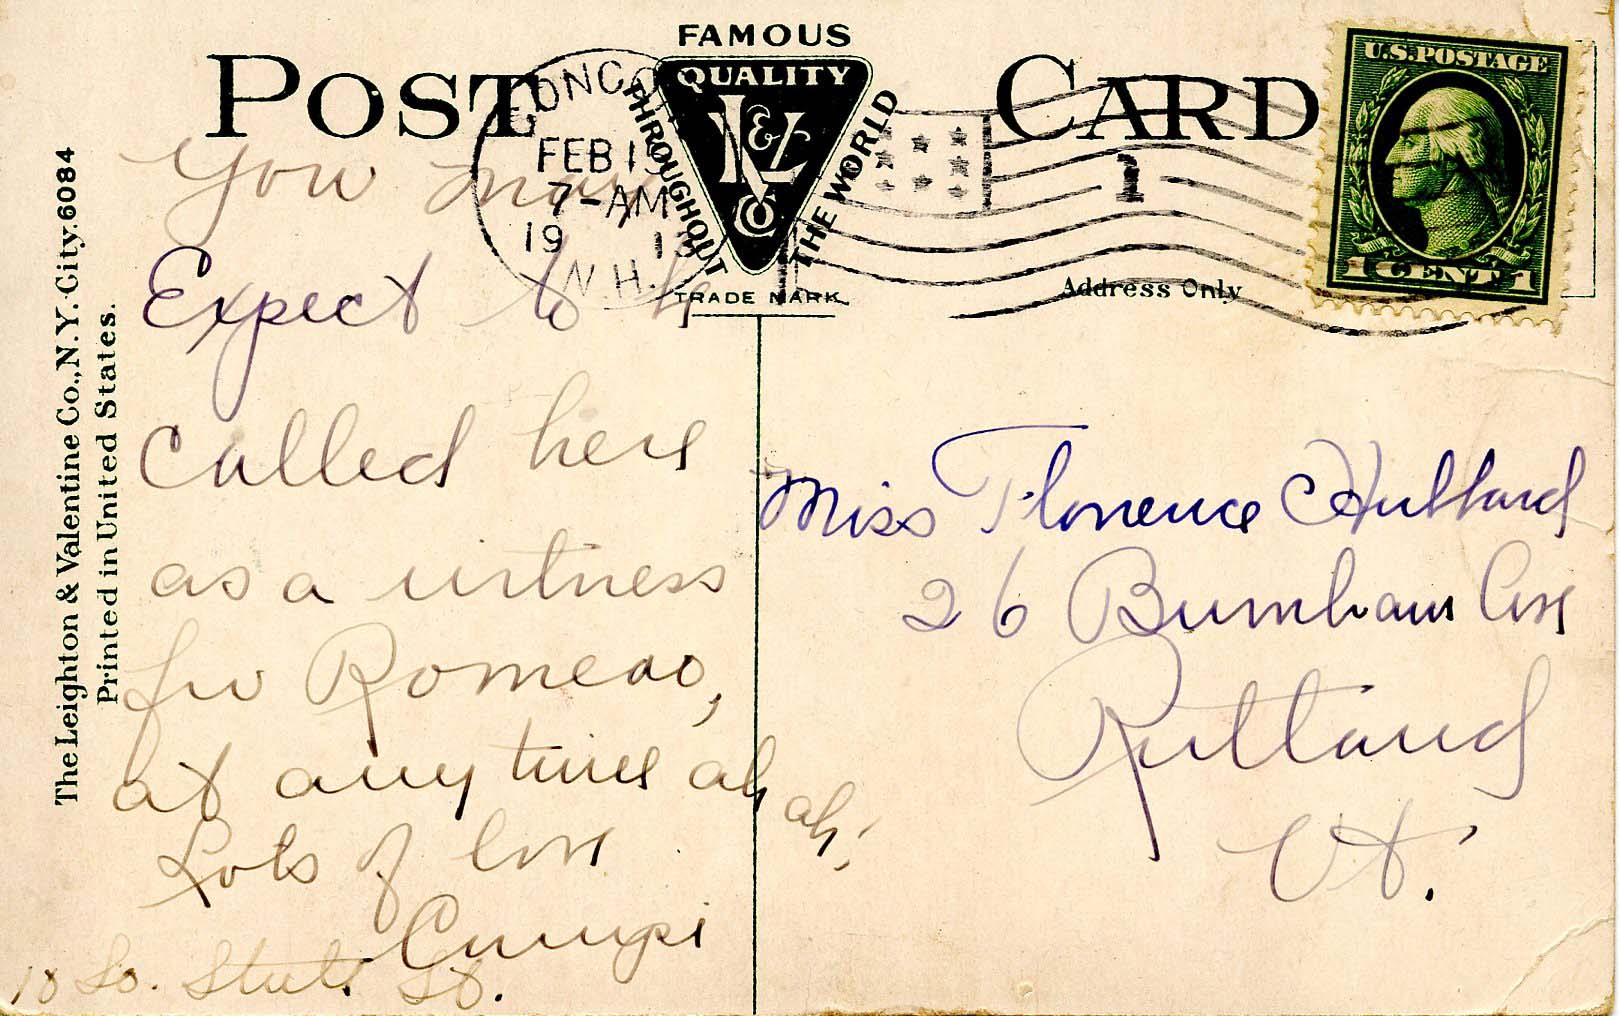 POST CARD
FAMOUS
QUALITY
THROUGHOUT THE WORLD
L&V
Co
TRADE MARK
CONCORD
FEB 15
7-AM
19 13
N.H.
1
U.S. POSTAGE
1 CENT 1
Address Only
The Leighton & Valentine Co., N.Y. City. 6084
Printed in United States.
You may
Expect to be
Called here
as a witness
for Romeao,
at any time ah
ah!
Lots of love
18 So. State St.
Miss Florence Hubbard
26 Burnham Ave
Rutland
Vt.